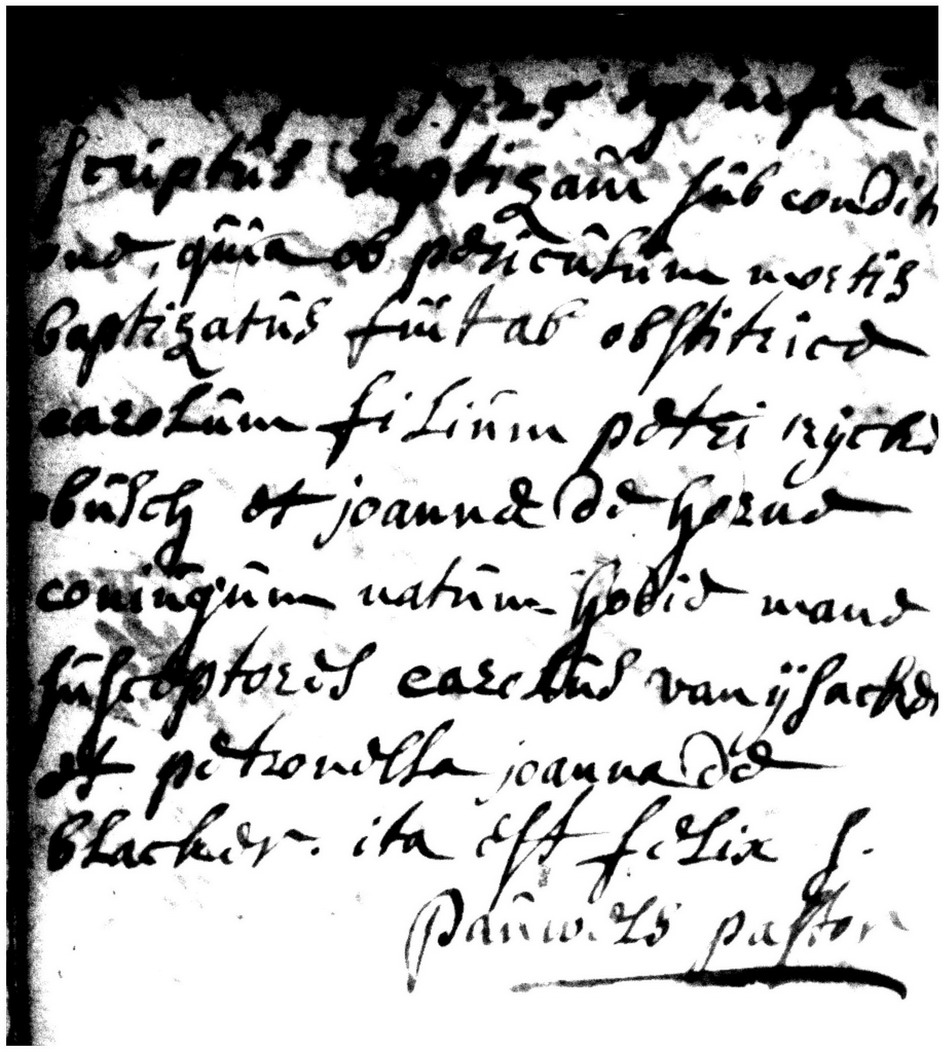 1725 ego infra
scriptus baptizavi sub conditi
one, quia ob periculum mortis
baptizatus fuit ab obstitrice
carolum filium petri rijcke
busch et joannae de horne
coniugum natum hodie mane
susceptores carolus van ijsacker
et petronella joanna de
blacker. ita est felix s.
Pauwels pastor